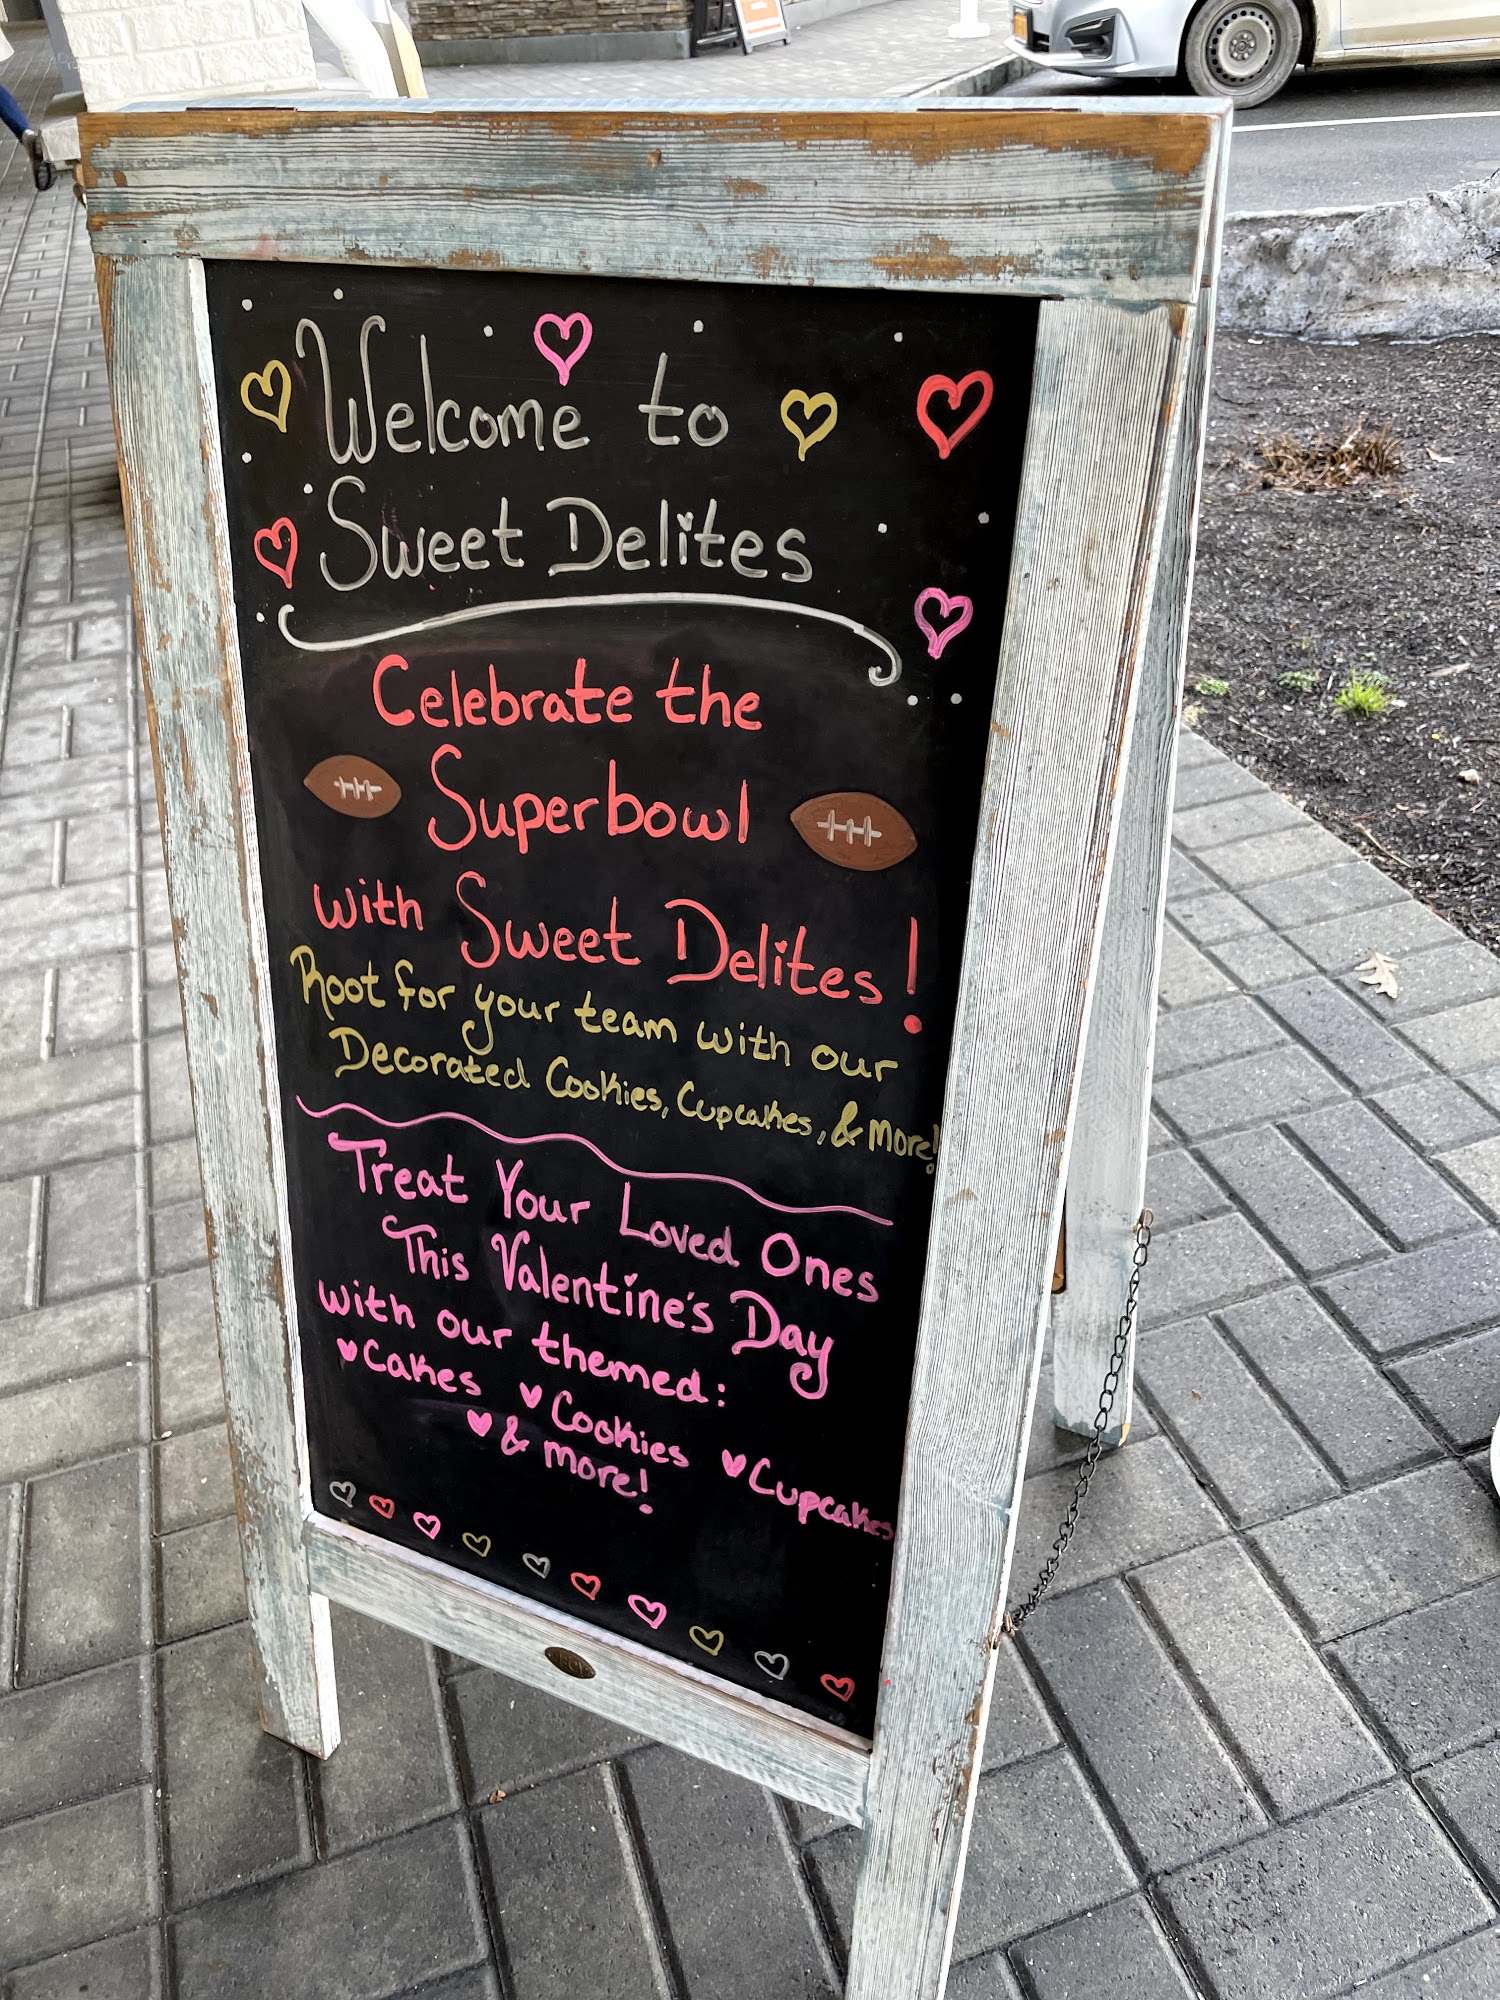 Welcome to
Sweet Delites
Celebrate the
Superbowl
with Sweet Delites!
Root for your team with our
Decorated Cookies, Cupcakes, & More!
Treat Your Loved Ones
This Valentine's Day
with our themed:
♥Cakes ♥Cookies ♥Cupcakes
♥& more!